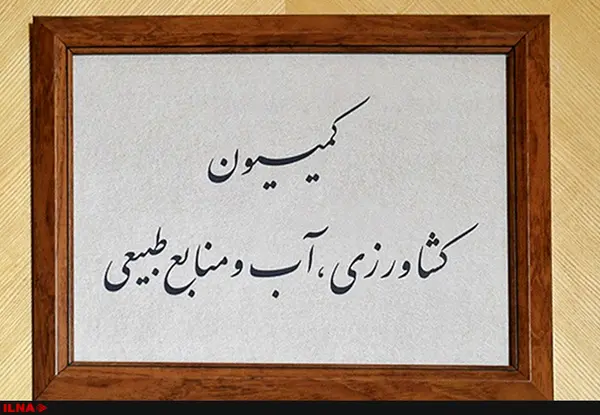 کمیسیون
کشاورزی، آب و منابع طبیعی
ILNA